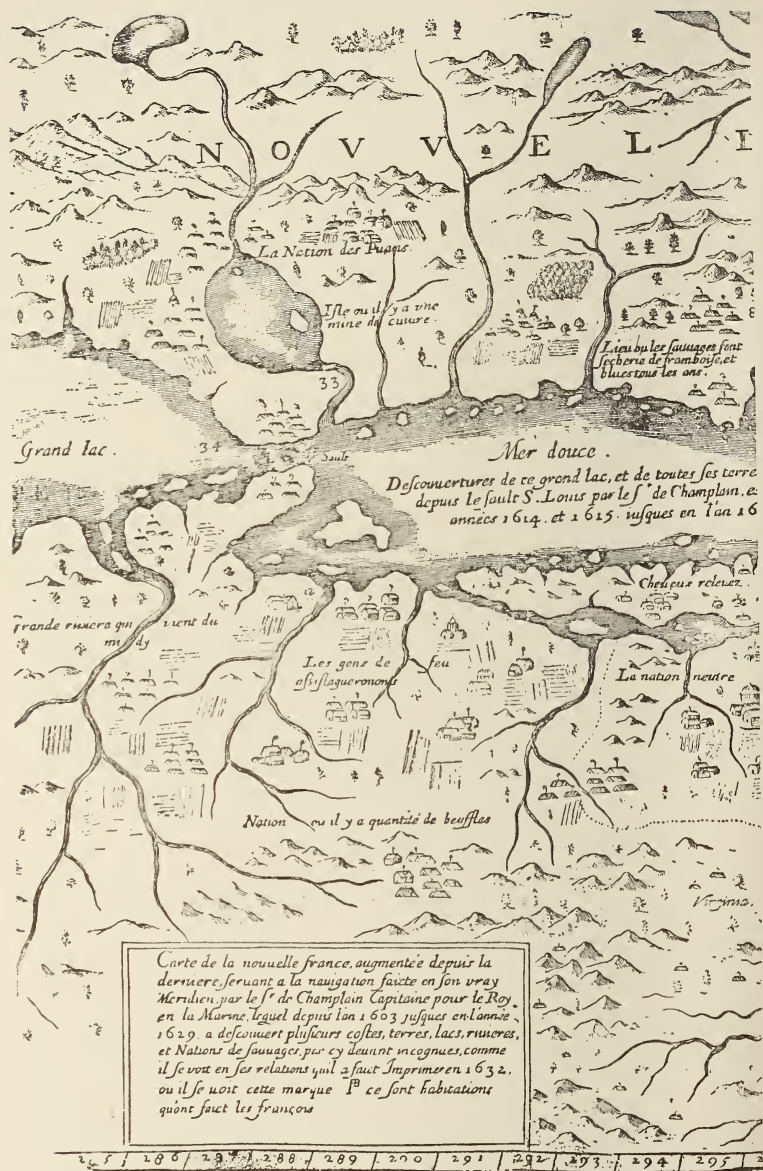 NOVVELI
La Nation des Puans
Isle ou il y a vne
mine de cuiure.
Lieu ou les sauuages font
secherie de framboise, et
blues tous les ans.
33
34
Grand lac.
Sault
Mer douce.
Descouuertures de ce grand lac, et de toutes ses terre
depuis le sault S. Louis par le sr de Champlain, e
années 1614. et 1615. iusques en l'an 16
Cheueus releuez
Grande riuiere qui vient du
midy
Les gens de feu
assistagueronons
La nation neutre
Nation ou il y a quantité de beuffles
Virginia.
Carte de la nouuelle france, augmentée depuis la
derniere, seruant a la nauigation faicte en son vray
Meridien, par le sr de Champlain Capitaine pour le Roy
en la Marine, lequel depuis l'an 1603 jusques en l'année
1629. a descouuert plusieurs costes, terres, lacs, riuieres,
et Nations de sauuages, par cy deuant incognues, comme
il se voit en ses relations quil a faict Imprimer en 1632.
ou il se uoit cette marque ce sont habitations
qu'ont faict les françois
265 286 287 288 289 290 291 292 293 294 295 2